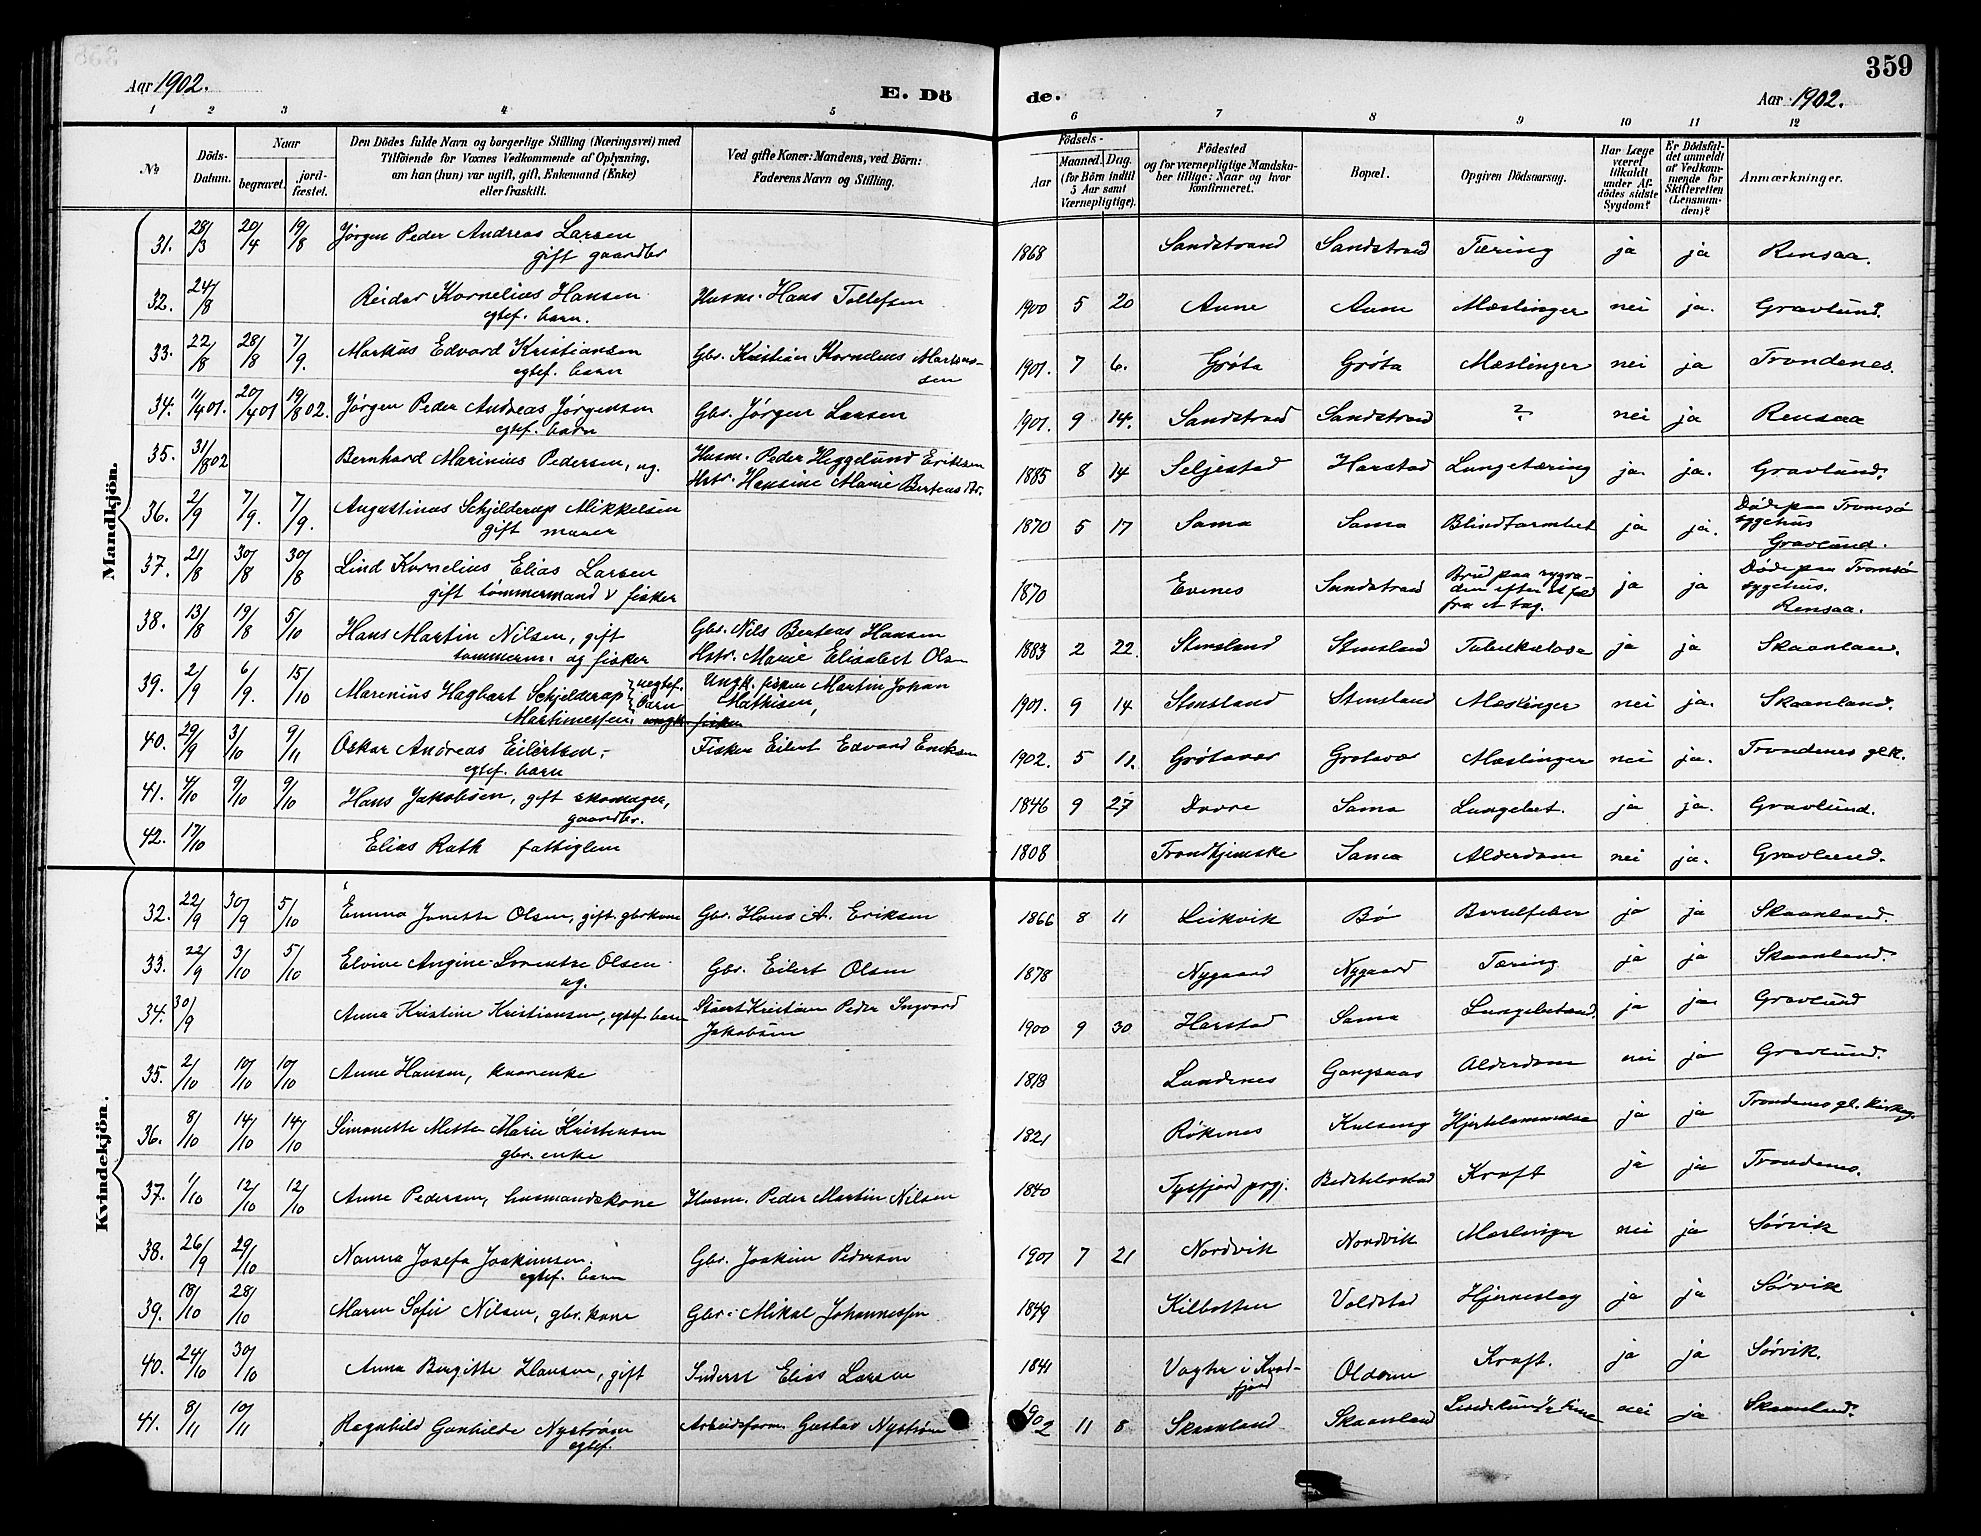 359
Aar 1902.
E. Dö
de.
Aar 1902.
1 2 3 4 5 6 7 8 9 10 11 12
No
Döds-Datum.
Naar
begravet.
jord-fæstet.
Den Dödes fulde Navn og borgerlige Stilling (Næringsvei) med
Tilföiende for Voxnes Vedkommende af Oplysning,
om han (hun) var ugift, gift, Enkemand (Enke)
eller fraskilt.
Ved gifte Koner: Mandens, ved Börn:
Faderens Navn og Stilling.
Födsels-
Aar
Maaned. Dag.
(for Börn indtil
5 Aar samt
Værnepligtige).
Födested
og for værnepligtige Mandska-
ber tillige: Naar og hvor
konfirmeret.
Bopæl.
Opgiven Dödsaarsag.
Har Læge
været
tilkaldt
under Af-
dödes sidste
Sygdom?
Er Dödsfal-
det anmeldt
af Vedkom-
mende for
Skifteretten
(Lensman-
den)?
Anmærkninger.
Mandkjön.
31. 28/3 20/4 19/8 Jørgen Peder Andreas Larsen 1868 Sandstrand Sandstrand Tæring ja ja Rensaa.
gift gaardbr
32. 24/8 Reidar Kornelius Hansen Husm. Hans Tollefsen 1900 5 20 Aune Aune Mæslinger nei ja. Gravlund.
egtef. barn.
33. 22/8 28/8 7/9. Markus Edvard Kristiansen Gbr. Kristian Kornelius Martens- 1901. 7 6. Grøta Grøta Mæslinger nei ja Trondenes.
egtef. barn sen
34. 11/4 01. 20/4 01 19/8 02. Jørgen Peder Andreas Jørgensen Gbr. Jørgen Larsen 1901. 9 14. Sandstrad Sandstrand ? nei ja Rensaa
egtef. barn
35. 31/8 02 Bernhard Marinius Pedersen, ug. Husm. Peder Heggelund Eriksen 1885 8 14 Seljestad Harstad Lungetæring ja ja. Gravlund.
Hstr. Hansine Marie Berteusdtr.
36. 2/9 7/9. 7/9. Augustinus Schjelderup Mikkelsen 1870 5 17 Sama Sama Blindtarmbet ja ja. Døde paa Tromsø
gift murer sygehus
Gravlund.
37. 21/8 30/8 30/8 Lind Kornelius Elias Larsen 1870 Evenes Sandstrand Brud paa rygra- ja ja Døde paa Tromsø
gift tømmermand & fisker den efter et fald sygehus.
fra et tag. Rensaa.
38. 13/8 19/8 5/10 Hans Martin Nilsen, gift Gbr. Nils Berteus Hansen 1883 2 22. Stensland Stensland Tuberkulose ja ja Skaanland.
tømmerm. og fisker Hstr. Marie Elisabet Olsn
39. 2/9 6/9. 15/10 Marenius Hagbart Schjelderup uegtef. Ungk. fisker Martin Johan 1901. 9 14 Stensland Stensland Mæslinger nei ja. Skaanland.
Martinussen barn Mathisen,
ungk. fisker
40. 29/9 3/10 9/11 Oskar Andreas Eilertsen. Fisker Eilert Edvard Eriksen 1902. 5 11. Grøtavær Grøtavær Mæslinger nei ja. Trondenes gl.k.
egtef. barn
41. 4/10 9/10 9/10 Hans Jakobsen, gift skomager, 1846 9 27 Dovre Sama Lungebet. ja ja. Gravlund.
gaardbr.
42. 17/10 Elias Rath fattiglem 1808 Trondhjemske Sama Alderdom nei ja. Gravlund.
Kvindekjön.
32. 22/9 30/9 5/10 Emma Jonette Olsen, gift gbrkone Gbr. Hans A. Eriksen 1866 8 11 Leikvik Bø Barselfeber ja ja Skaanland.
33. 22/9 3/10 5/10 Elvine Angine Lorentze Olsen Gbr. Eilert Olsen 1878 Nygaard Nygaard Tæring ja ja Skaanland.
ug.
34. 30/9 Anna Kristine Kristiansen, egtef. barn Kristian Peder Ingvard 1900 9 30 Harstad Sama Lungebetænd. ja ja. Gravlund
Jakobsen
35. 2/10 10/10 10/10 Anne Hansen, enke 1818 Landenes Gangsaas Alderdom nei ja Gravlund.
36. 8/10 14/10 14/10 Simonette Mette Marie Kristensen 1821 Røkenes Kulseng Hjertelammelse ja ja Trondenes gl. kirkeg.
gbr. enke
37. 1/10 12/10 12/10 Anne Pedersen, husmandskone Husm. Peder Martin Nilsen 1840 Tysfjord prgj. Kræft ja ja Trondenes.
38. 26/9 29/10 Nanna Josefa Joakimsen, Gbr. Joakim Pedersen 1901 7 21 Nordvik Nordvik Mæslinger nei ja Sørvik
egtef. barn
39. 18/10 28/10 Maren Sofie Nilsen, gbr. kone Gbr. Mikal Johannessen 1849 Kilbotten Voldstad Hjerneslag ja ja Sørvik
40. 24/10 30/10 Anna Bergitte Hansen, gift Inderst Elias Larsen 1841 Vagter i Kvæd- Kræft. ja ja Sørvik.
fjord
41. 8/11 10/11 Ragnhild Gunhilde Nystrøm Arbeidsform. Gustav Nystrøm 1902 11 8 Skaanland Skaanland nei ja Skaanland.
egtef.